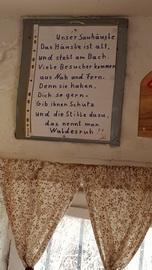 Unser Sauhäusle
Das Häusle ist alt,
und steht am Bach.
Viele Besucher kommen
aus Nah und Fern.
Denn sie haben
Dich so gern.
Gib ihnen Schutz
und die Stille dazu,
das nennt man
Waldesruh!